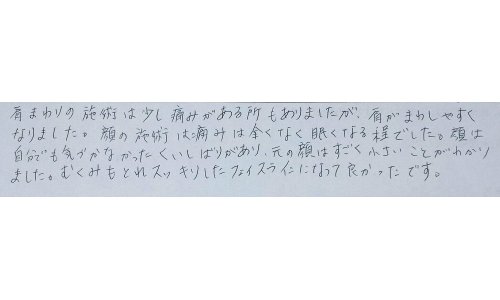 肩まわりの施術は少し痛みがある所もありましたが、肩がまわしやすく
なりました。顔の施術は痛みは全くなく眠くなる程でした。顔は
自分でも気づかなかったくいしばりがあり、元の顔はすごく小さいことがわかり
ました。むくみもとれスッキリしたフェイスラインになって良かったです。